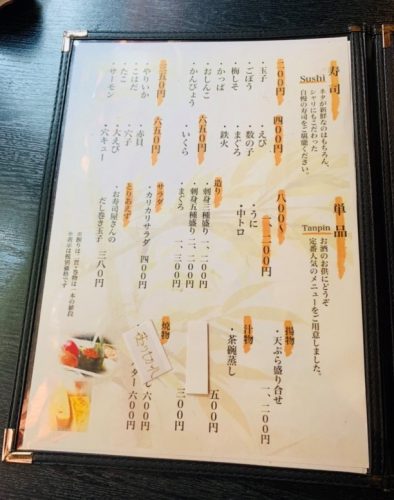 寿司
Sushi
ネタが新鮮なのはもちろん、
シャリにもこだわった
自慢の寿司をご堪能ください。
二〇〇円
・玉子
・ごぼう
・梅しそ
・かっぱ
・おしんこ
・かんぴょう
五〇円
・やりいか
・こはだ
・たこ
・サーモン
四〇〇円
・えび
・数の子
・まぐろ
・鉄火
六五〇円
・いくら
六五〇円
・赤貝
・穴子
・大えび
・穴キュー
八〇〇〜
一、二〇〇円
・うに
・中トロ
造り
・刺身三種盛り 一、二〇〇円
・刺身五種盛り 二、二〇〇円
・まぐろ 一、三〇〇円
サラダ
・カリカリサラダ 四〇〇円
とりあえず
・お寿司屋さんの
だし巻き玉子 三八〇円
※握りは二貫・巻物は一本の値段
※表示は税別価格です
単品
Tanpin
お酒のお供にどうぞ
定番人気のメニューをご用意しました。
揚物
・天ぷら盛り合せ
一、二〇〇円
汁物
・茶碗蒸し
五〇〇円
三〇〇円
焼物
六〇〇円
ター 六〇〇円